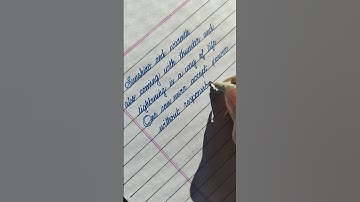 Sunshine and smooth
also coming with thunder and
lightening is a way of life
One can never accept power
without responsib